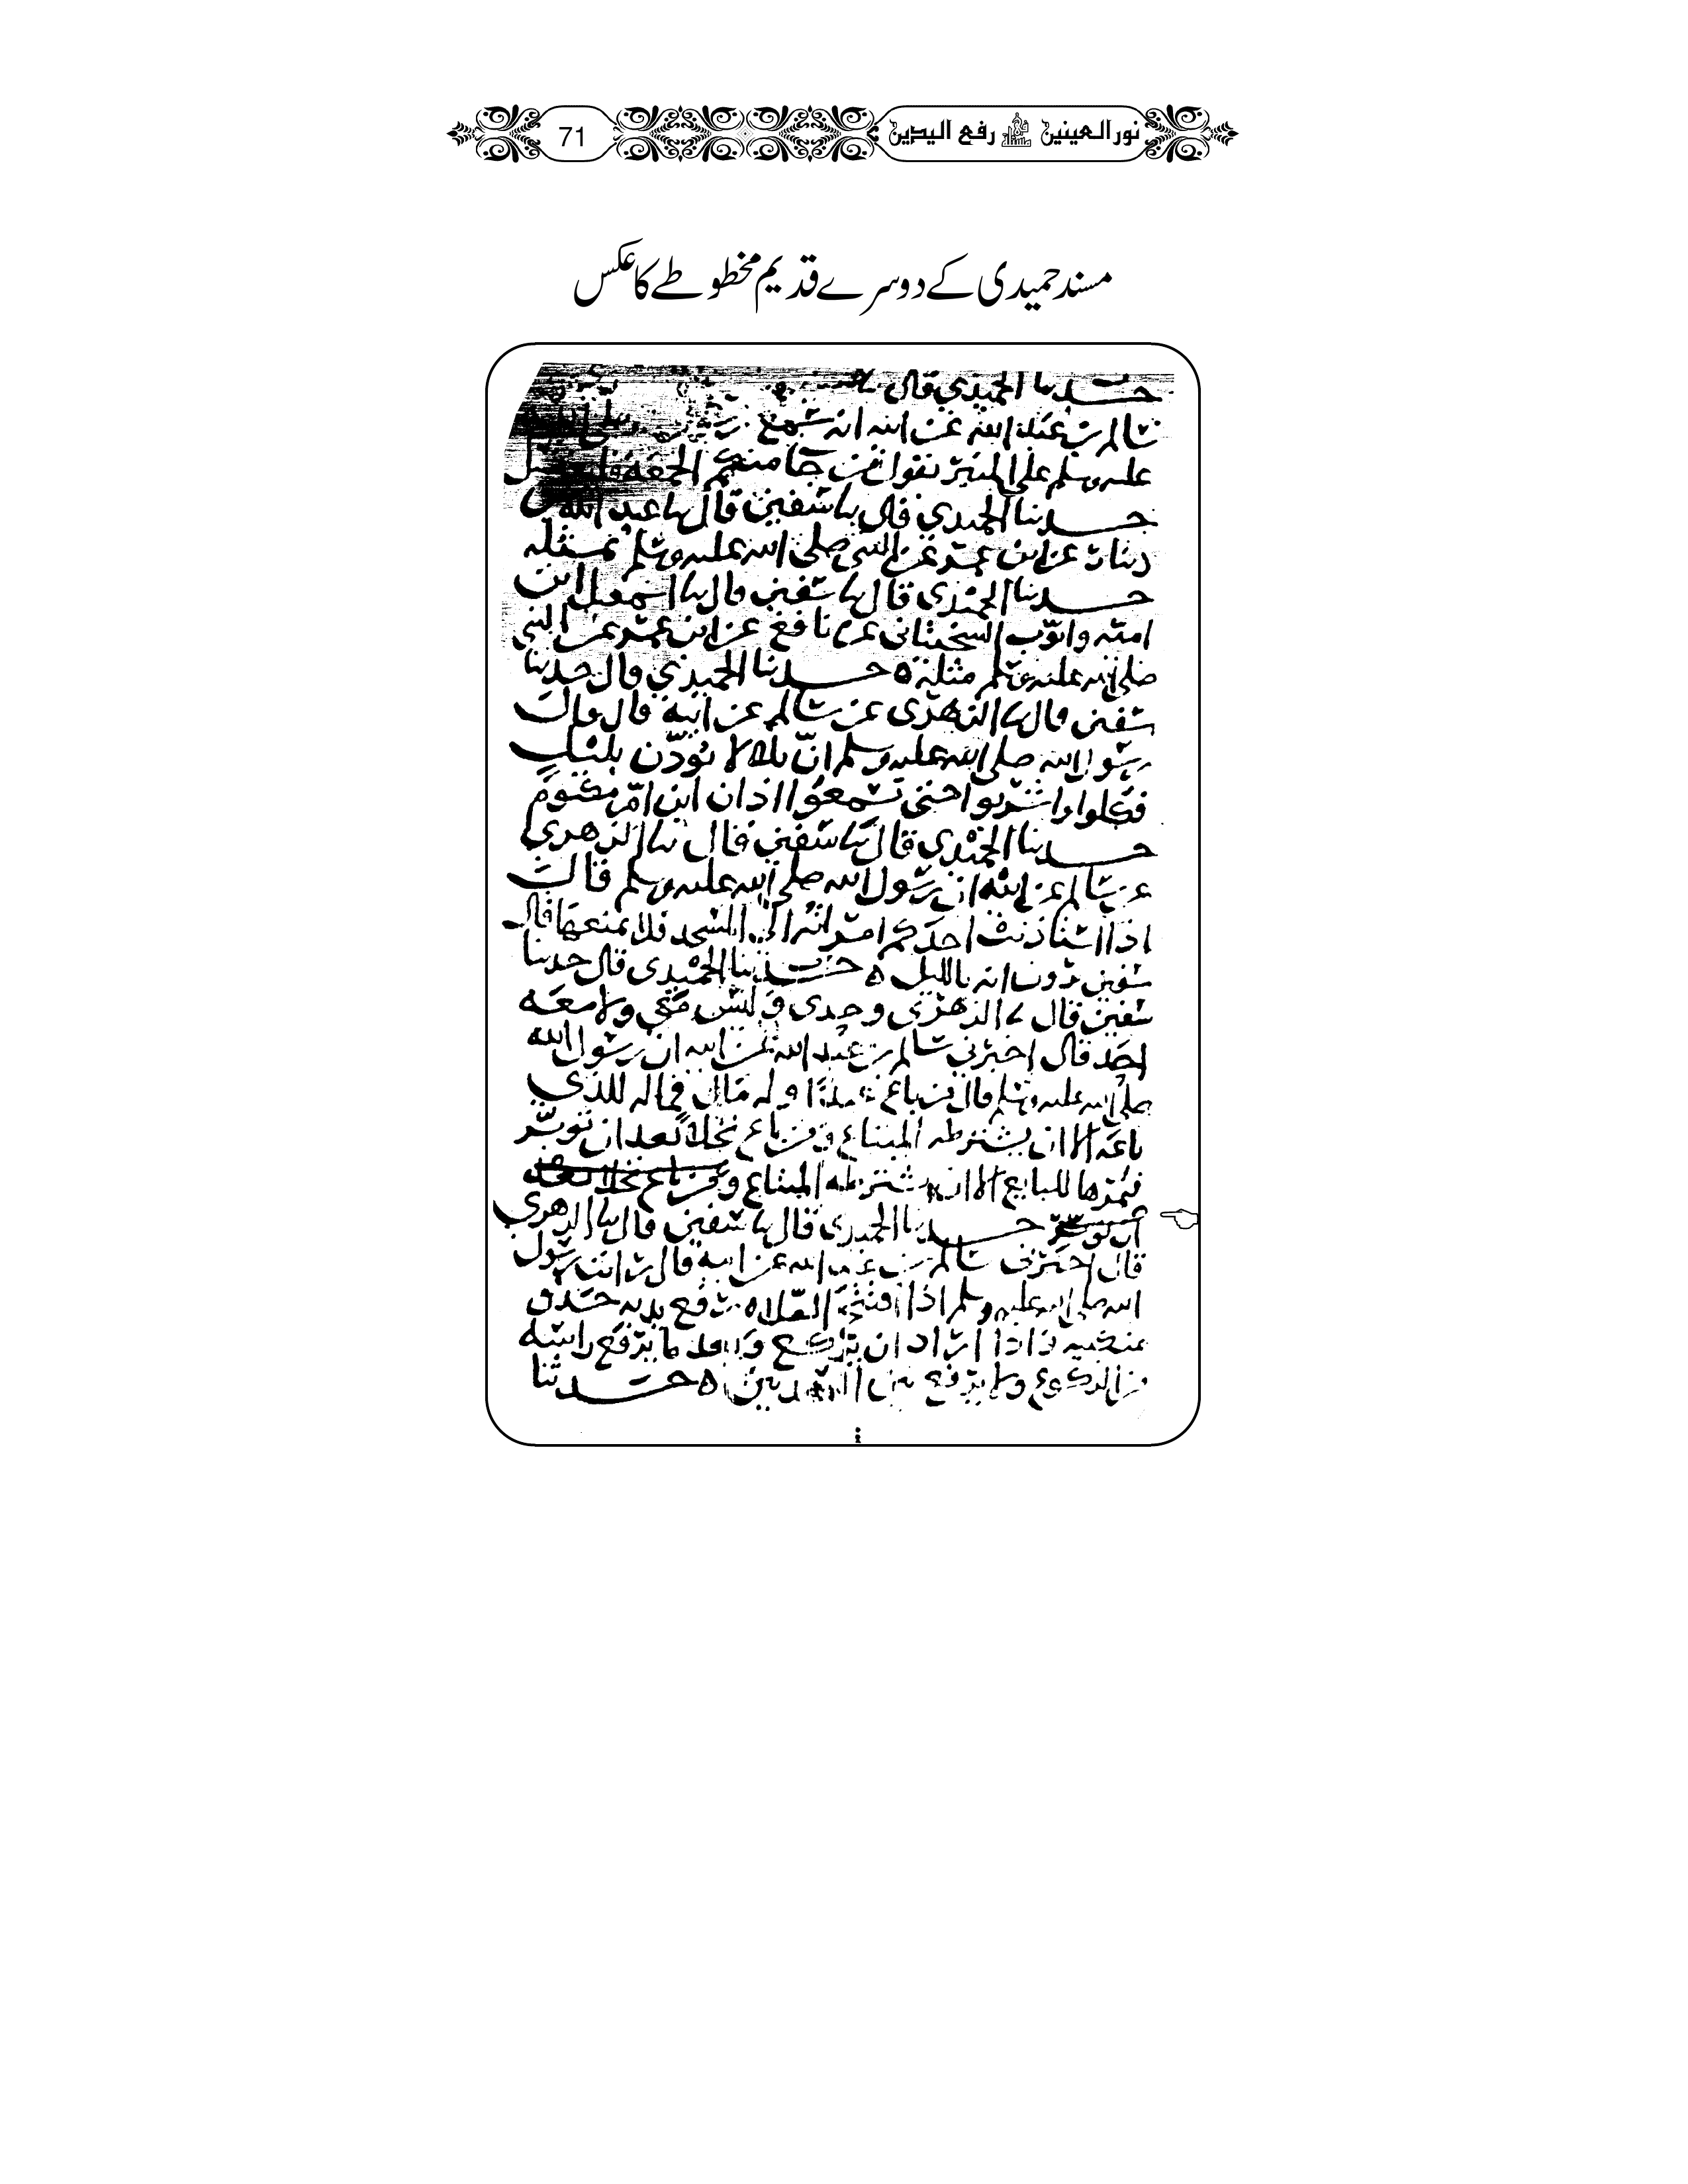 نور العينين فی مسئلة رفع اليدين
71
مسند حمیدی کے دوسرے قدیم مخطوطے کا عکس
حدثنا الحميدي قال
سالم بن عبد الله عن ابيه انه سمع
عليه وسلم على المنبر يقول من جا منكم الجمعة
حدثنا الحميدي قال ثنا سفين قال ثنا عبد الله بن
دينار عن ابن عمر عن النبي صلى الله عليه وسلم بمثله
حدثنا الحميدي قال ثنا سفين قال ثنا اسمعيل ابن
امية وايوب السختياني عن نافع عن ابن عمر عن النبي
صلى الله عليه وسلم مثله ه حدثنا الحميدي قال حدثنا
سفين قال ثنا الزهري عن سالم عن ابيه قال قال
رسول الله صلى الله عليه وسلم ان بلالا يوذن بليل
فكلوا واشربوا حتى تسمعوا اذان ابن ام مكتوم
حدثنا الحميدي قال ثنا سفين قال ثنا الزهري
عن سالم عن ابيه ان رسول الله صلى الله عليه وسلم قال
اذا استاذنت احدكم امراته الى المسجد فلا يمنعها قال
سفين يرون انه بالليل ه حدثنا الحميدي قال حدثنا
سفين قال ثنا الزهري وحدي وليس معي ولا معه
احد قال اخبرني سالم بن عبد الله عن ابيه ان رسول الله
صلى الله عليه وسلم قال من باع عبدا وله مال فماله للذي
باعه الا ان يشترطه المبتاع ومن باع نخلا بعد ان توبر
فثمرها للبايع الا ان يشترطه المبتاع ومن باع نخلا بعد
ان توبر حدثنا الحميدي قال ثنا سفين قال ثنا الزهري
قال اخبرني سالم بن عبد الله عن ابيه قال رايت رسول
الله صلى الله عليه وسلم اذا افتتح الصلاة رفع يديه حذو
منكبيه واذا اراد ان يركع وبعد ما يرفع راسه
من الركوع ولا يرفع بين السجدتين ه حدثنا